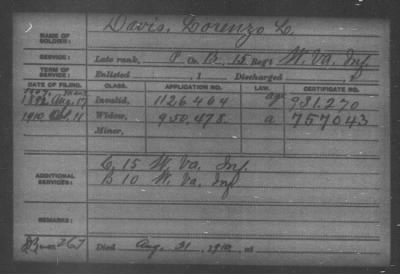 NAME OF SOLDIER: Davis, Lorenzo L.
SERVICE: Late rank, P. Co. B, 15 Reg't W. Va. Inf.
TERM OF SERVICE: Enlisted , 1 Discharged , 1
DATE OF FILING. CLASS. APPLICATION NO. LAW. CERTIFICATE NO.
1892 Aug. 17 Invalid, 1126464 931.270
1910 Widow, 950.478 a 757043
Minor,
ADDITIONAL SERVICES: C, 15 W. Va. Inf.
B 10 W. Va. Inf
REMARKS:
267 Died Aug. 31, 1910, at